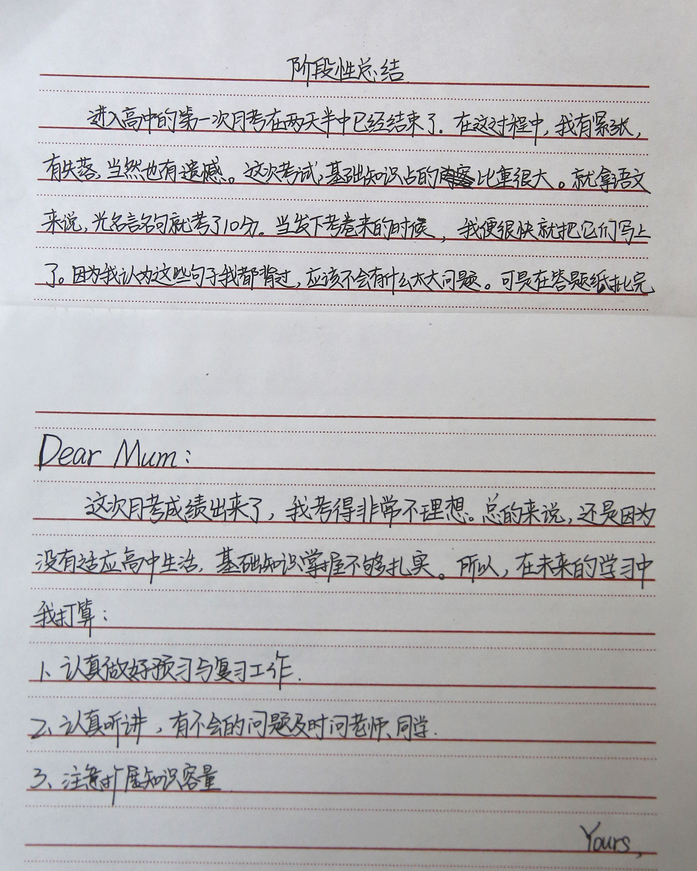 阶段性总结
进入高中的第一次月考在两天半中已经结束了。在这过程中,我有紧张,
有失落,当然也有遗憾。这次考试,基础知识占的比重很大。就拿语文
来说,光名言名句就考了10分。当发下考卷来的时候,我便很快就把它们写上
了。因为我认为这些句子我都背过,应该不会有什么太大问题。可是在答题纸批完
Dear Mum:
这次月考成绩出来了,我考得非常不理想。总的来说,还是因为
没有适应高中生活,基础知识掌握不够扎实。所以,在未来的学习中
我打算:
1、认真做好预习与复习工作.
2、认真听讲,有不会的问题及时问老师、同学.
3、注意扩展知识容量
Yours,